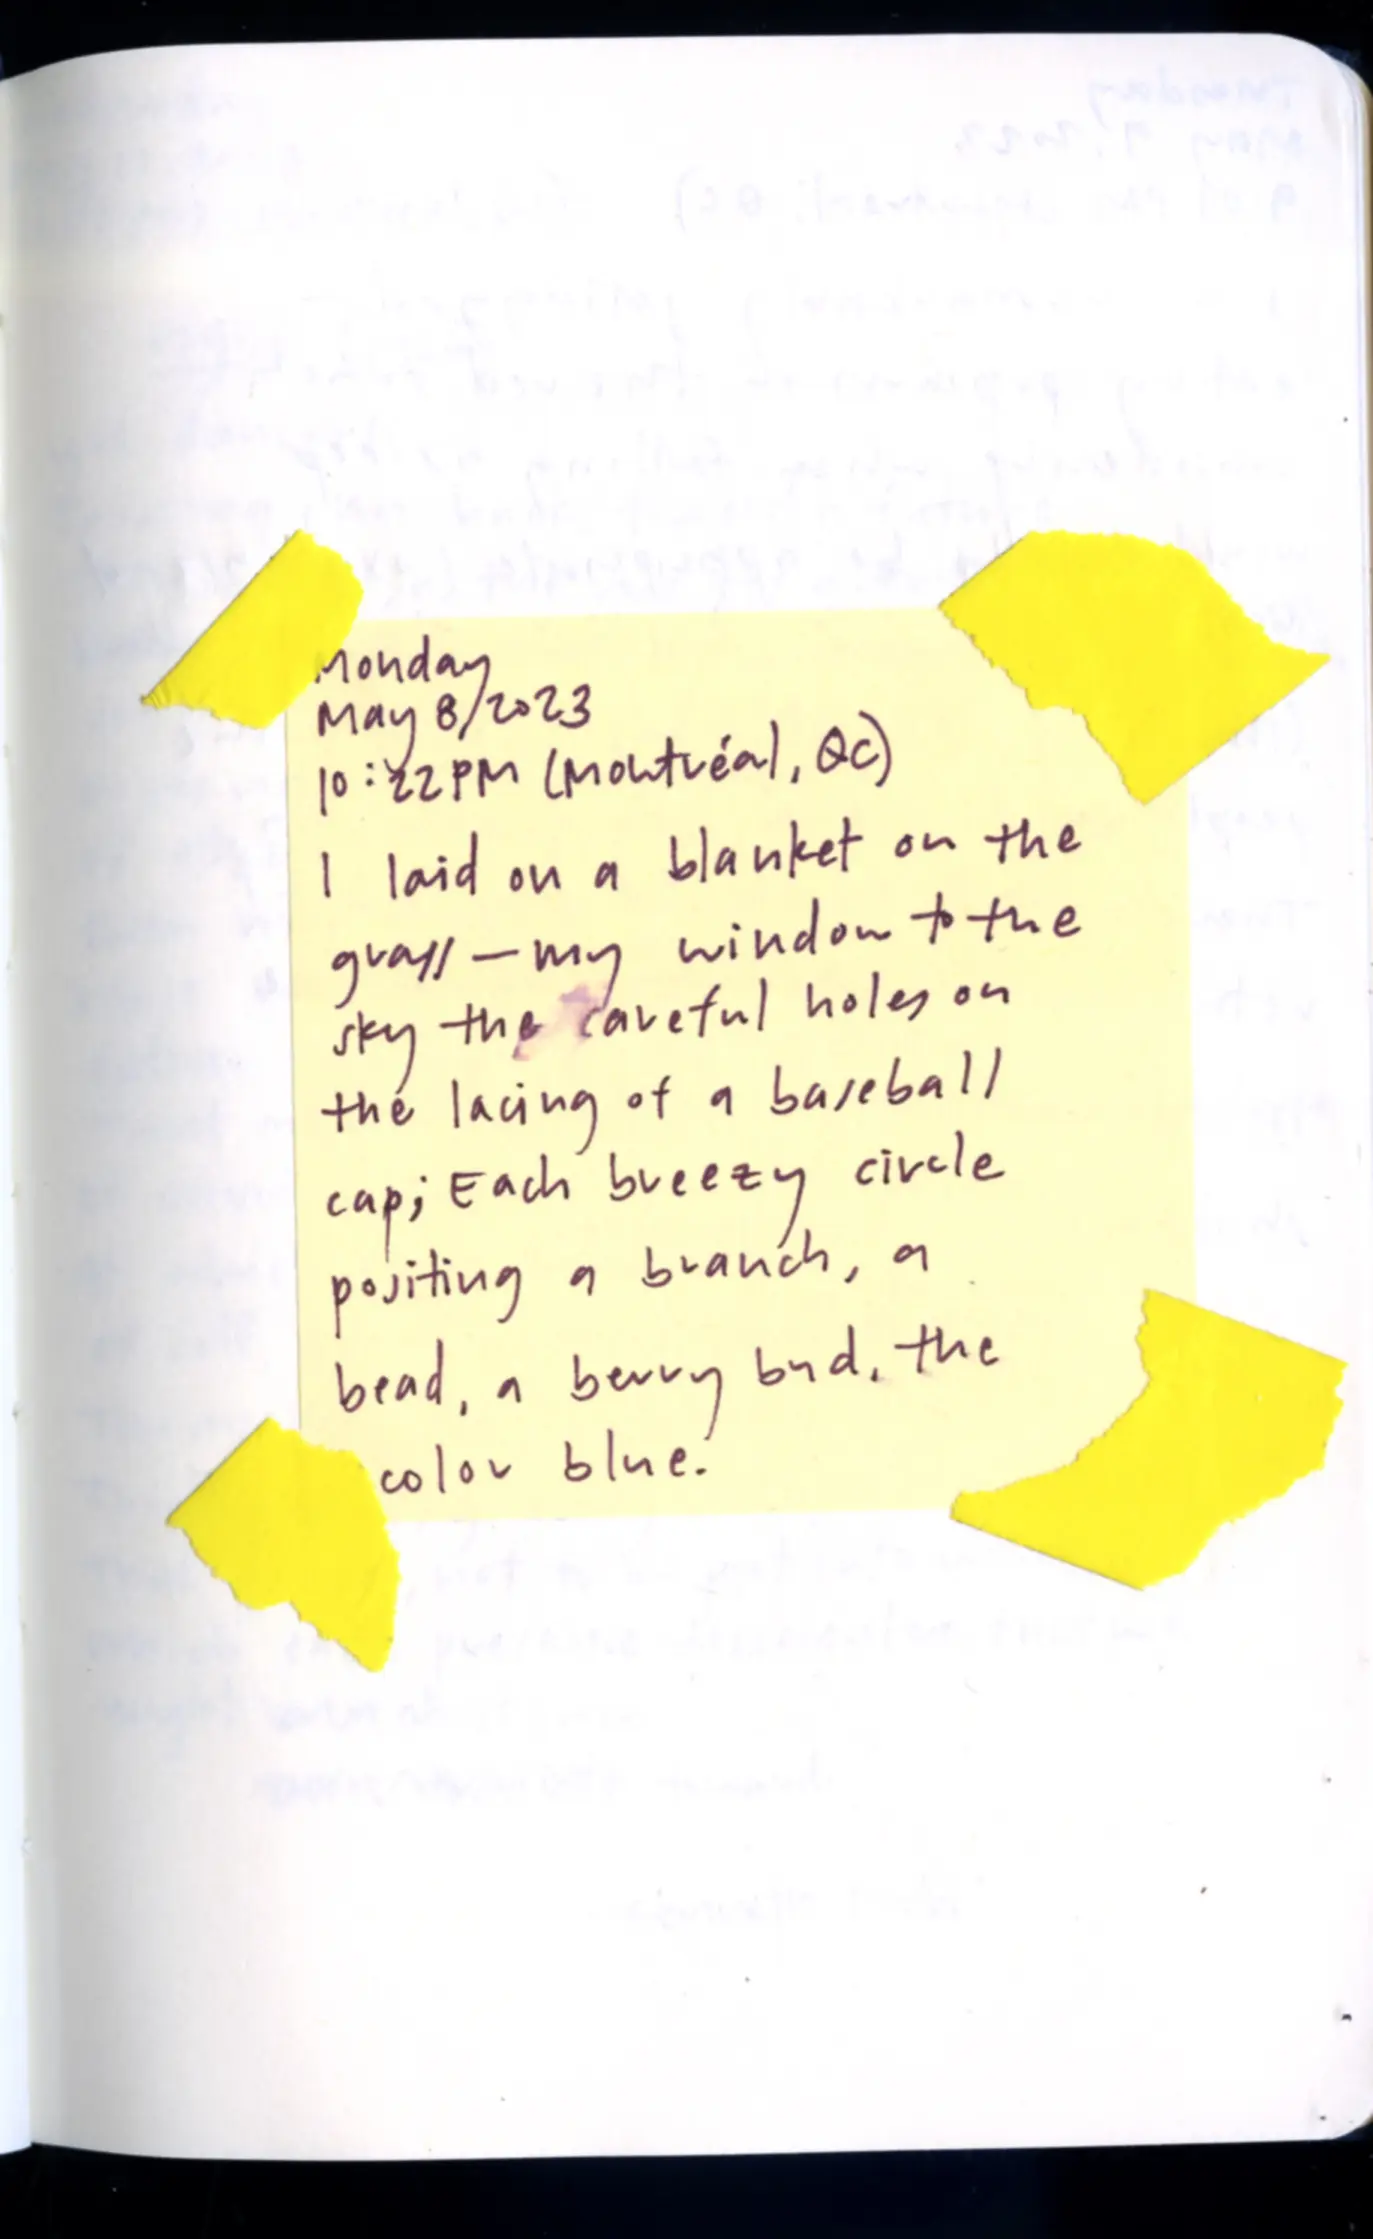 Monday
May 8/2023
10:22PM (Montréal, QC)
I laid on a blanket on the
grass — my window to the
sky the careful holes on
the lacing of a baseball
cap; Each breezy circle
positing a branch, a
bead, a berry bud, the
color blue.